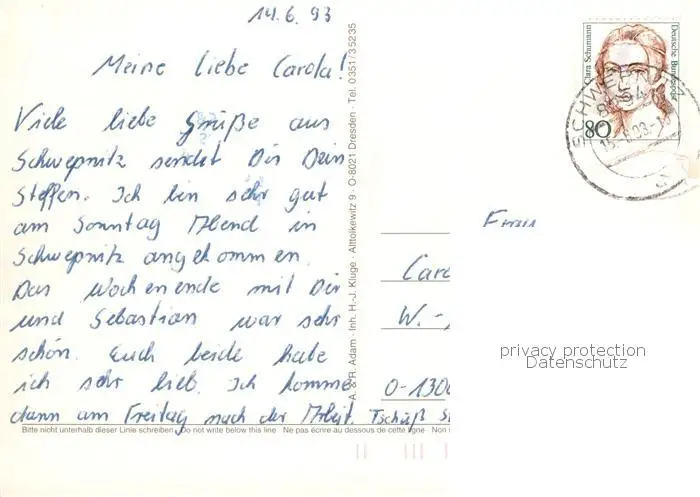 14.6.93
Meine liebe Carola!
Viele liebe Grüße aus
Schwepnitz sendet Dir Dein
Steffen. Ich bin sehr gut
am Sonntag Abend in
Schwepnitz angekommen.
Das Wochenende mit Dir
und Sebastian war sehr
schön. Euch beide habe
ich sehr lieb. Ich komme
dann am Freitag nach der Arbeit. Tschüß St
Bitte nicht unterhalb dieser Linie schreiben Do not write below this line Ne pas écrire au dessous de cette ligne Non
A. & R. Adam · Inh. H.-J. Kluge · Alttolkewitz 9 · O-8021 Dresden · Tel. 0351/35235
Clara Schumann
Deutsche Bundespost
80
SCHWEPN
Caro
W.-
O-1300
privacy protection
Datenschutz